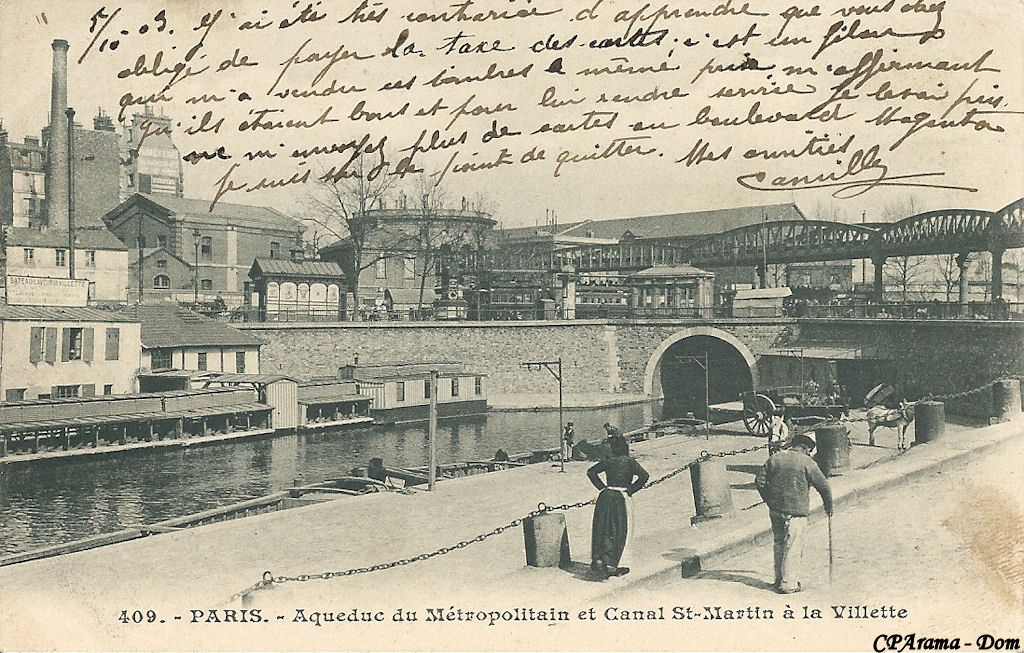 5/10-03. J'ai été très contrariée d'apprendre que vous étiez
obligé de payer la taxe des cartes, c'est un filou
qui m'a vendu ces timbres à même prix m'affirmant
qu'ils étaient bons et pour lui rendre service je le avais pris.
ne m'envoyez plus de cartes au boulevard Magenta
je suis sur le point de quitter. Mes amitiés
Camille
BATEAU LAVOIR LA VILLETTE
409. - PARIS. - Aqueduc du Métropolitain et Canal St-Martin à la Villette
CPArama - Dom